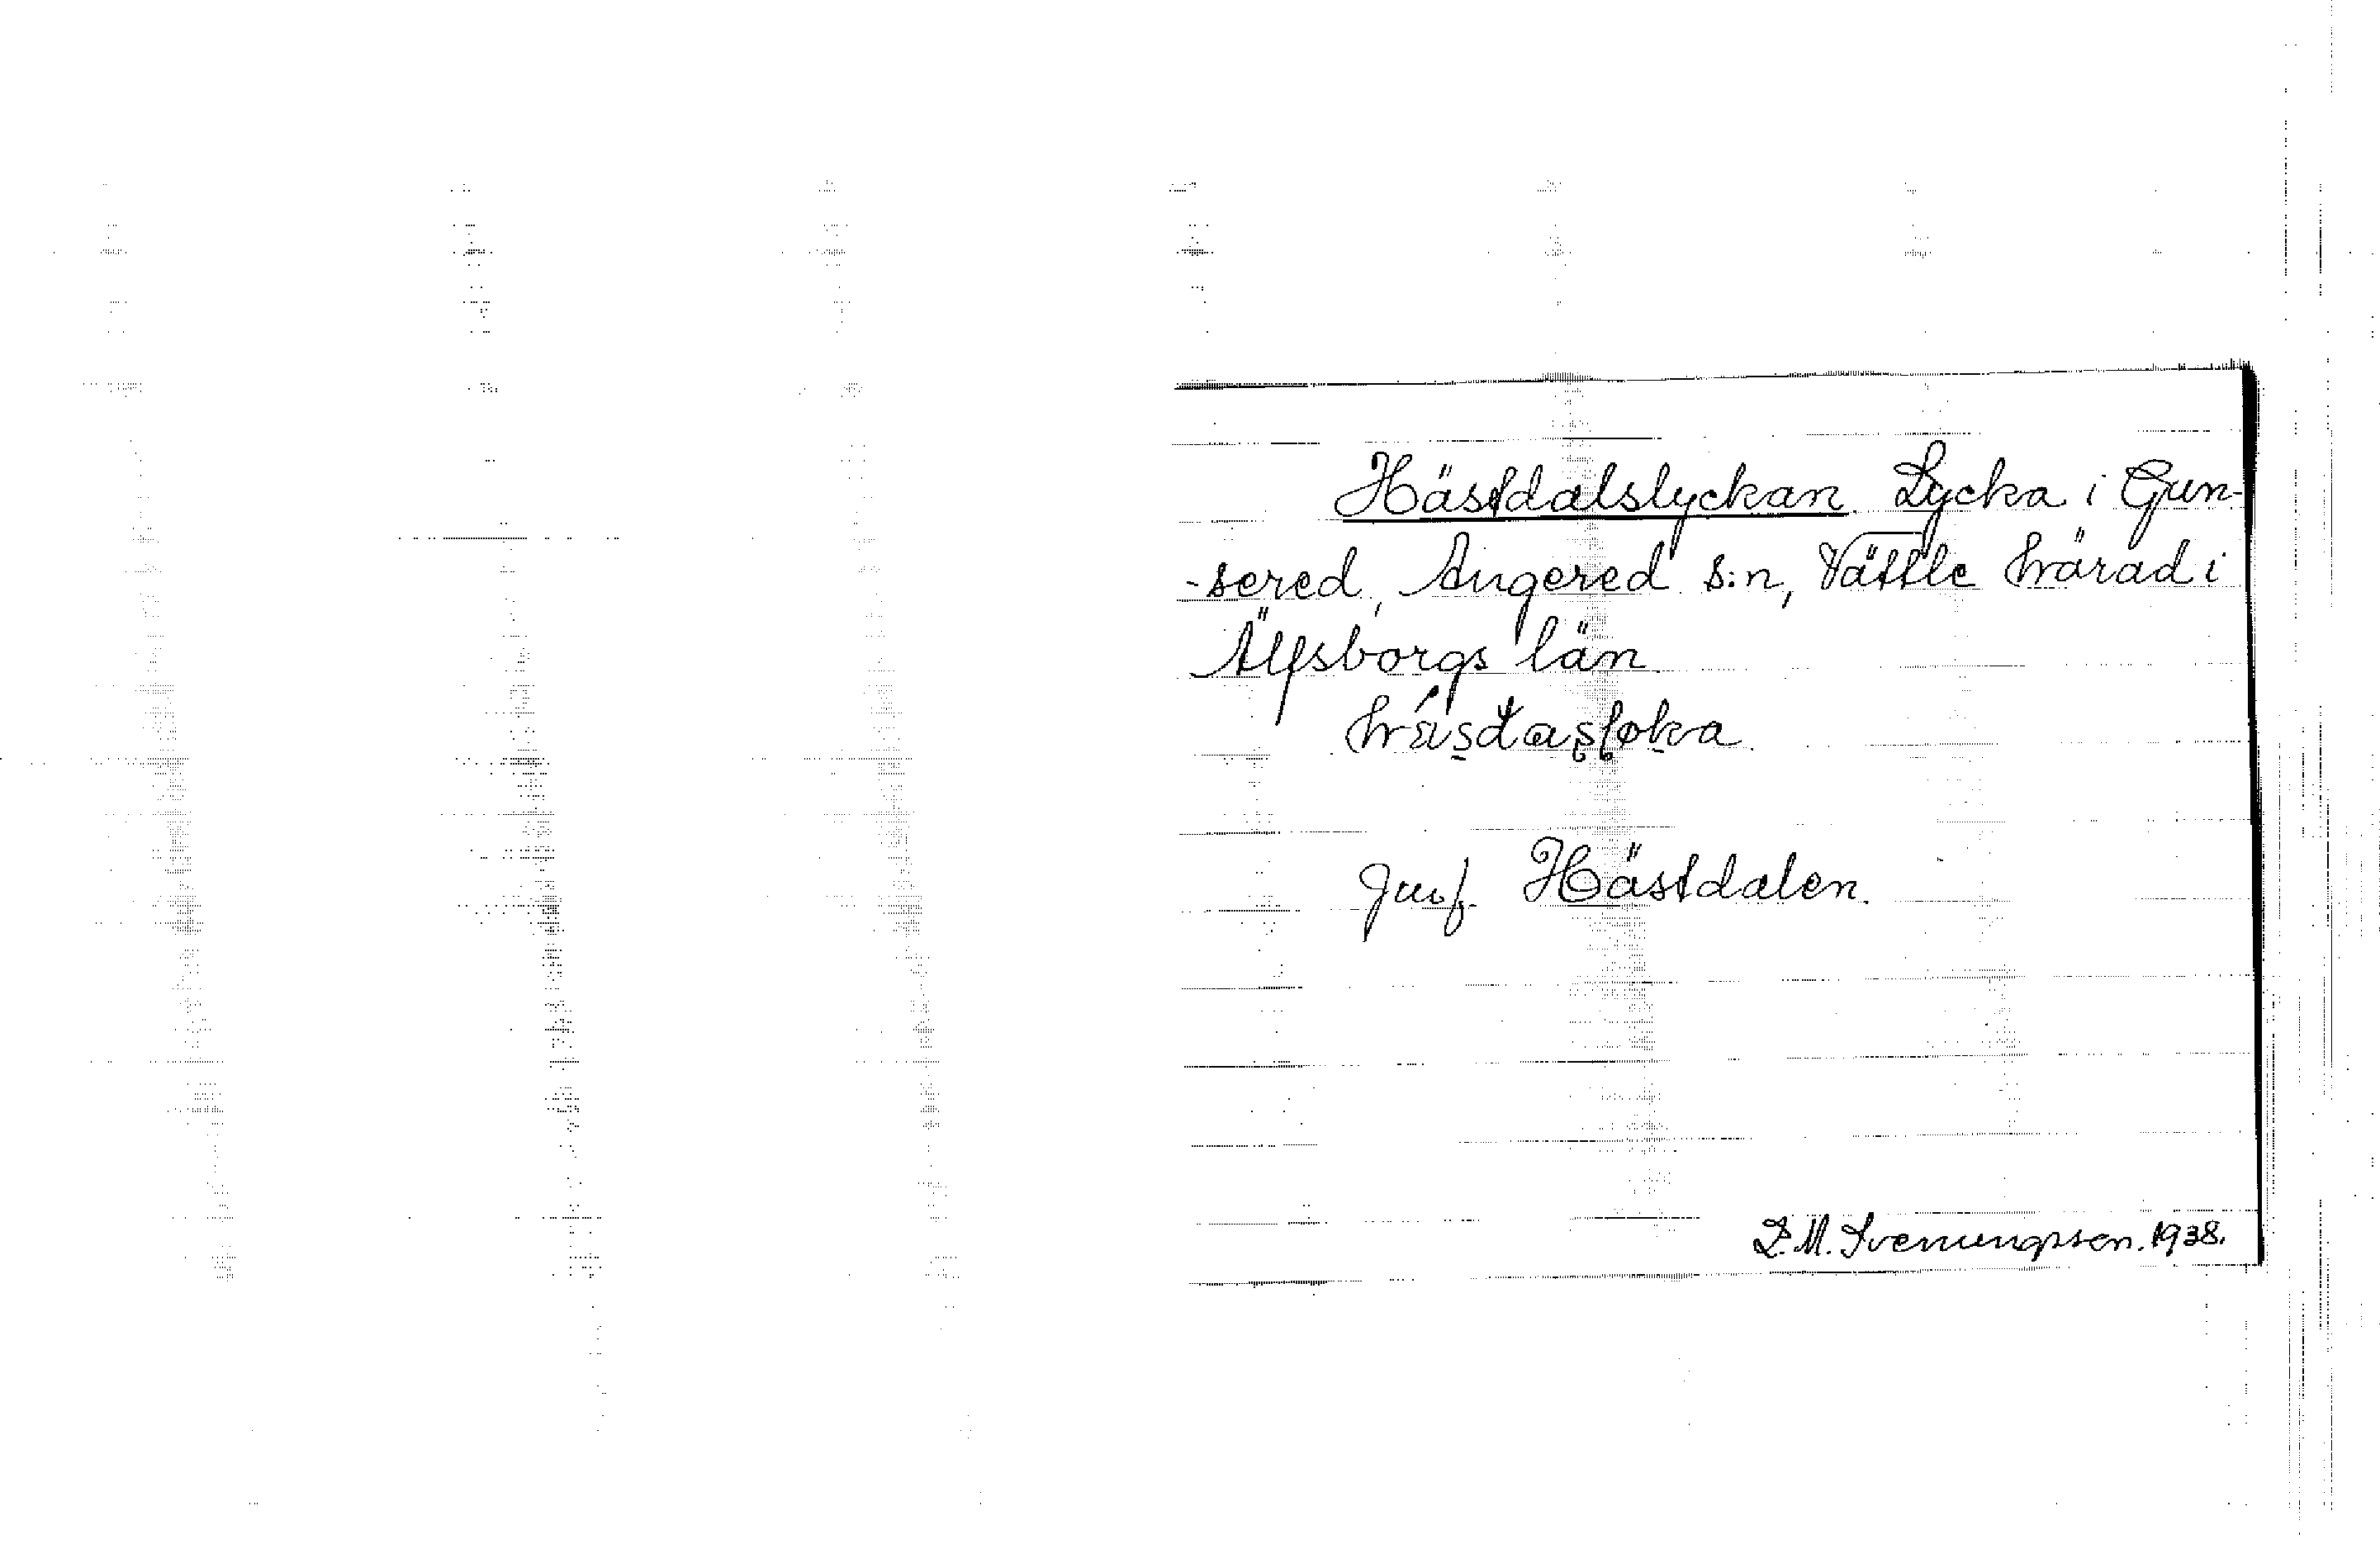 Hästdalslyckan. Lycka i Gun-
-sered, Angered s:n, Vättle härad i
Älfsborgs län.
Jmf. Hästdalen.
D. M. Svenungsson. 1938.